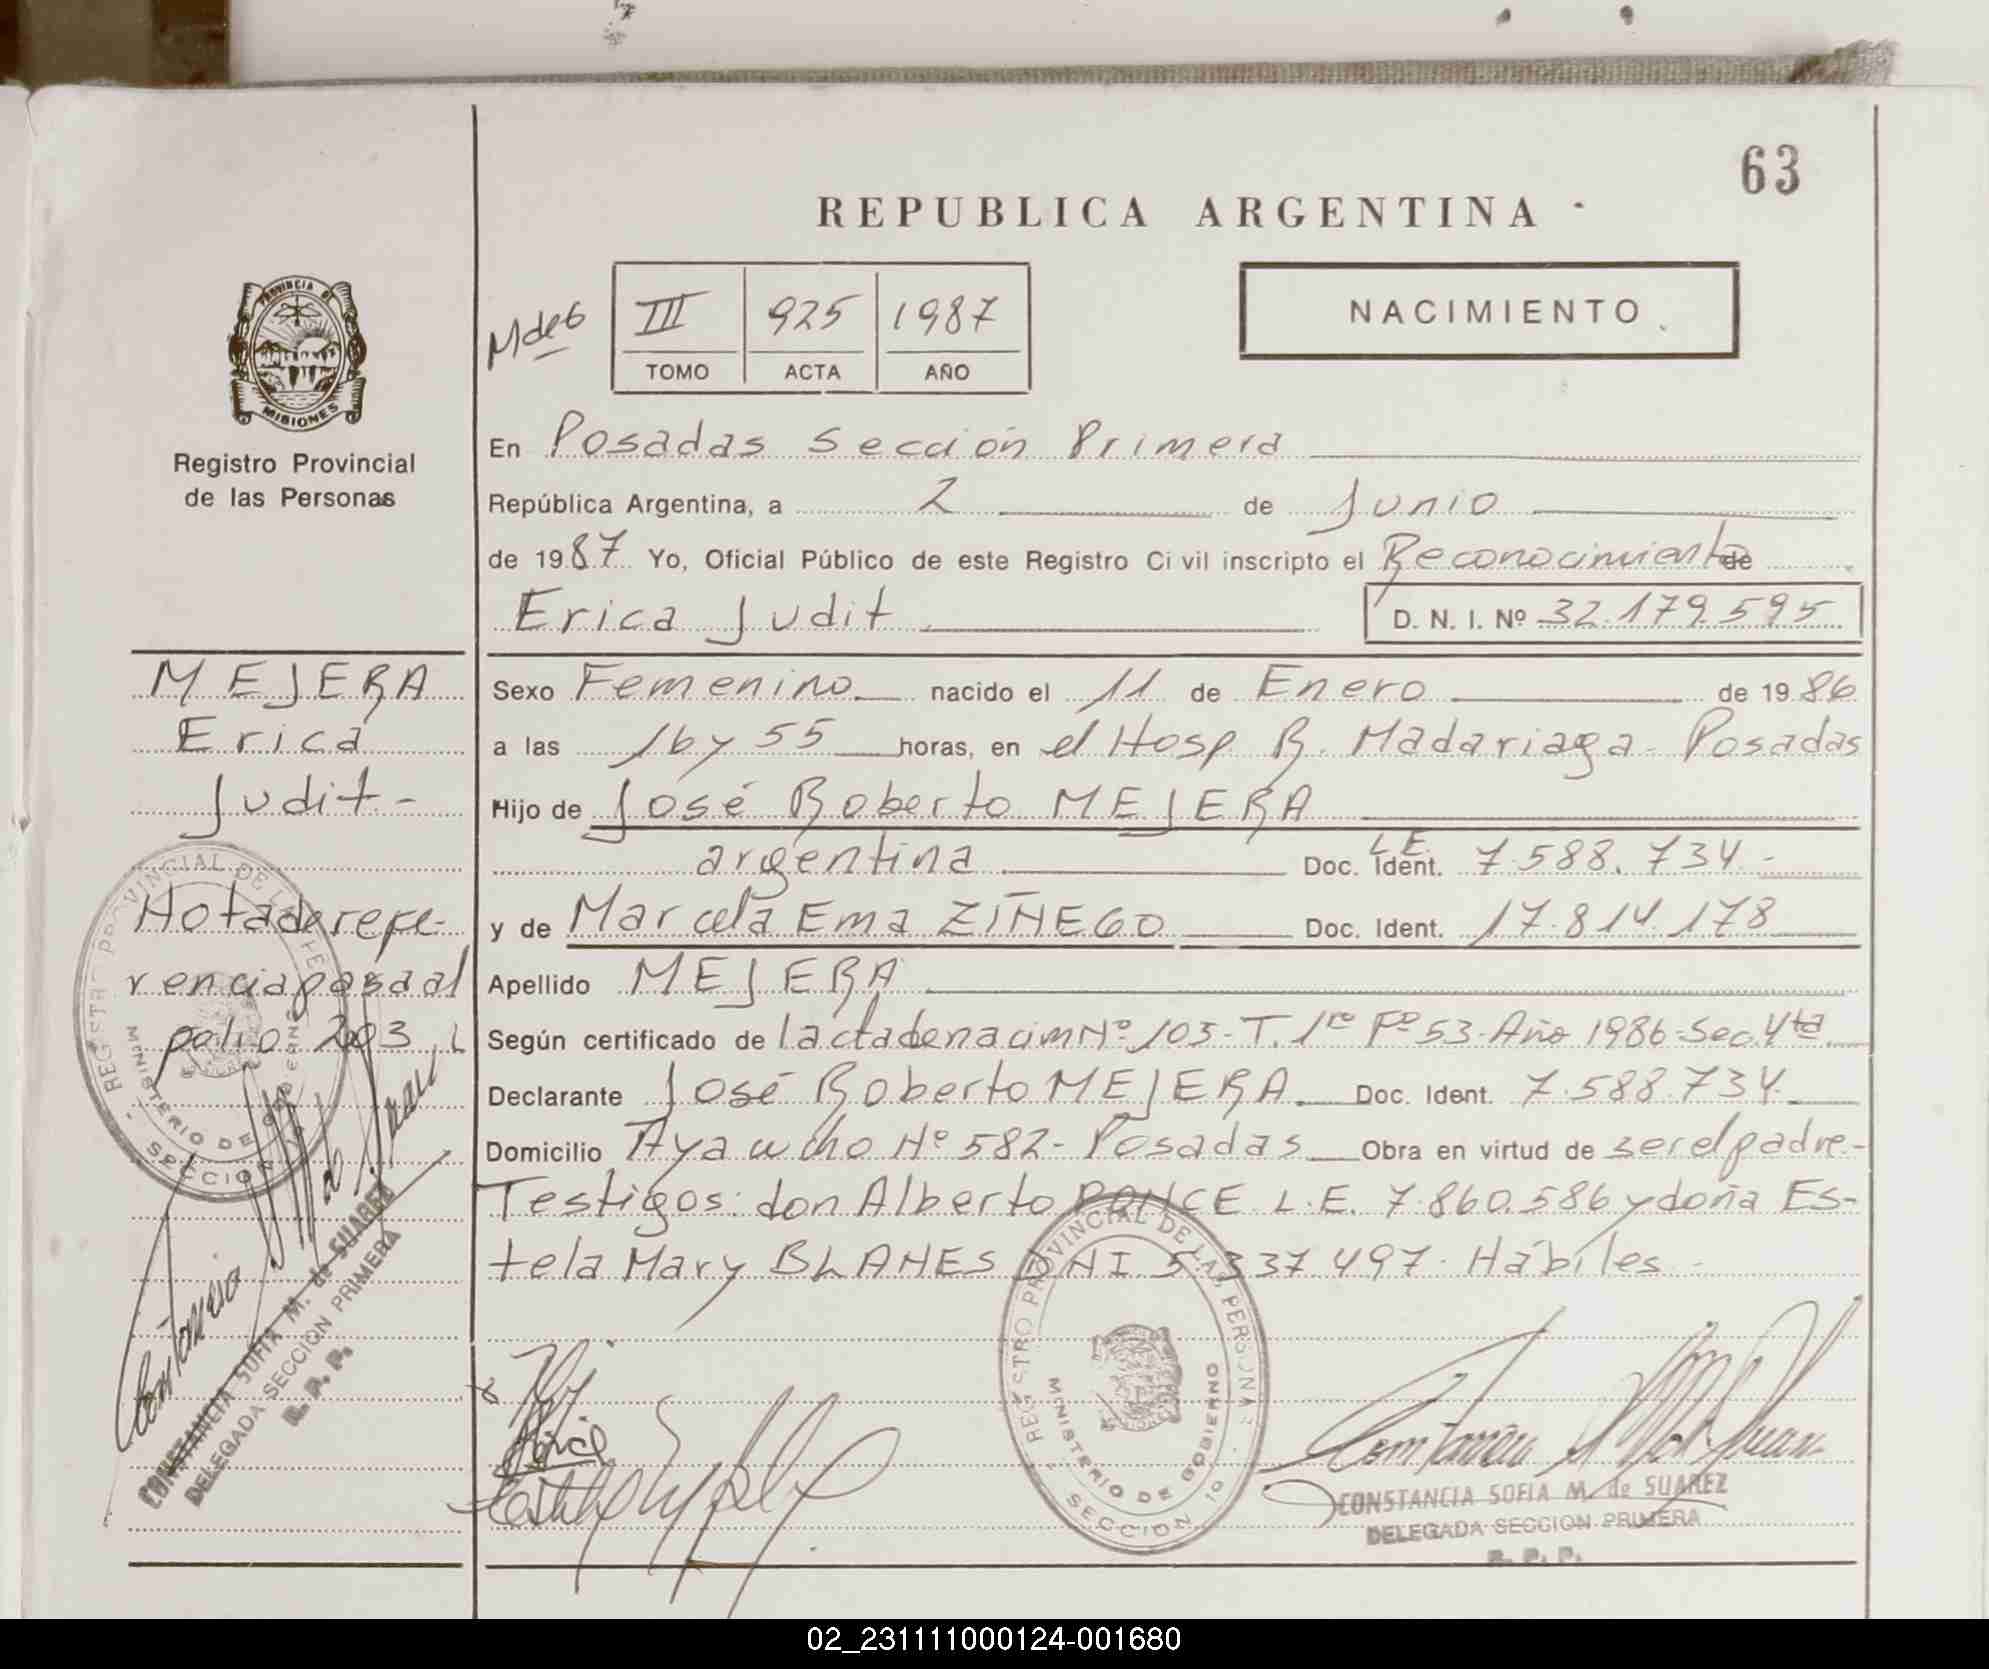 63
REPUBLICA ARGENTINA
PROVINCIA DE
MISIONES
Registro Provincial
de las Personas
III 925 1987
TOMO ACTA AÑO
NACIMIENTO
En Posadas Sección Primera
República Argentina, a 2 de Junio
de 1987 Yo, Oficial Público de este Registro Civil inscripto el Reconocimiento de
Erica Judit D. N. I. Nº 32.179.595
Sexo Femenino nacido el 11 de Enero de 1986
a las 16 y 55 horas, en el Hosp R. Madariaga - Posadas
Hijo de José Roberto MEJERA
argentina Doc. Ident. L.E. 7.588.734-
y de Marcela Ema ZIÑEGO Doc. Ident. 17.814.178
Apellido MEJERA
Según certificado de lactadenacim Nº 103-T. 1ro Fº 53-Año 1986-Sec. 4ta
Declarante José Roberto MEJERA Doc. Ident. 7.588.734
Domicilio Ayacucho Nº 582- Posadas Obra en virtud de ser el padre-
Testigos: don Alberto PONCE L.E. 7.860.586 y doña Es-
tela Mary BLANES DNI 5.337.497. Hábiles-
MEJERA
Erica
Judit-
Nota de refe-
rencia pasa al
folio 203
REGISTRO PROVINCIAL DE LAS PERSONAS
MINISTERIO DE GOBIERNO
SECCION
CONSTANCIA SOFIA M. de SUAREZ
DELEGADA SECCION PRIMERA
R. P. P.
REGISTRO PROVINCIAL DE LAS PERSONAS
MINISTERIO DE GOBIERNO
SECCION 10
CONSTANCIA SOFIA M. de SUAREZ
DELEGADA SECCION PRIMERA
R. P. P.
02_231111000124-001680